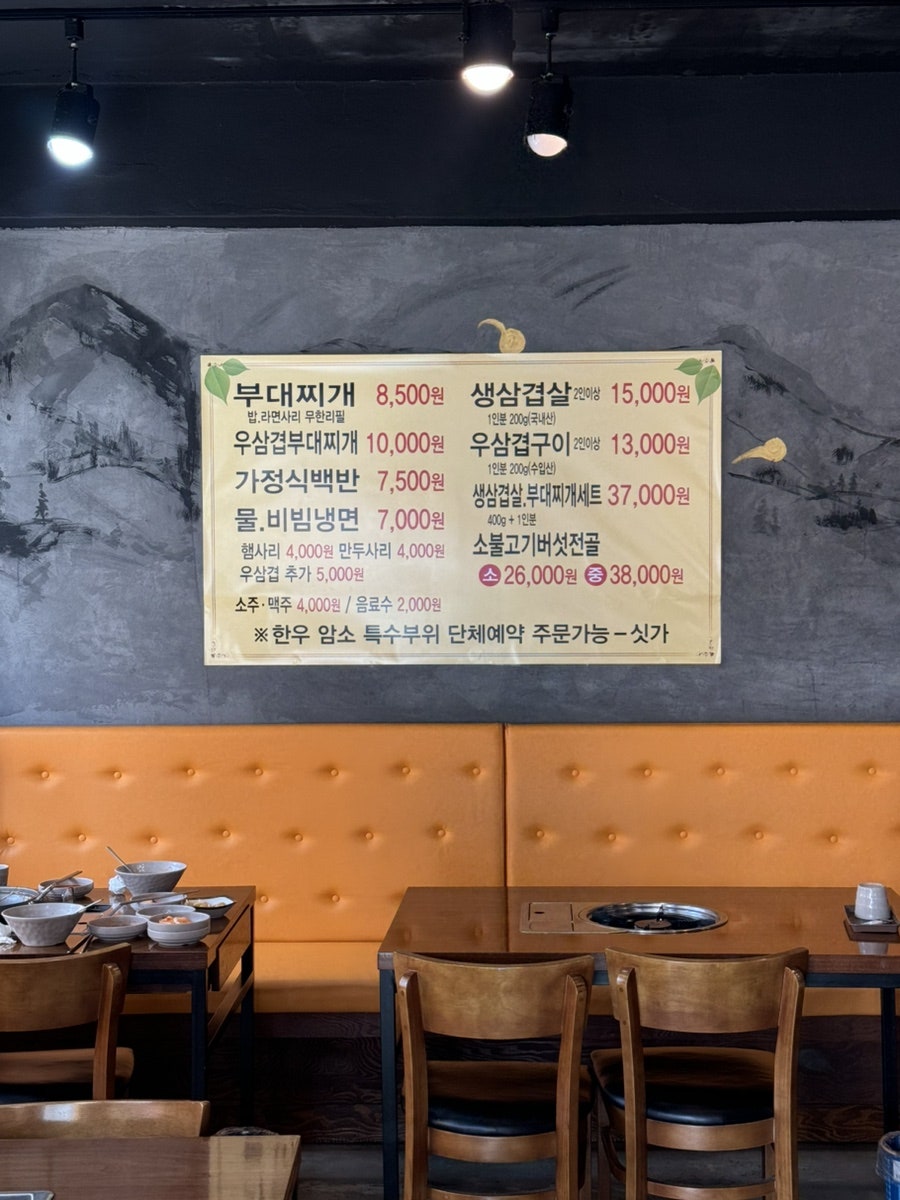 부대찌개 8,500원
밥.라면사리 무한리필
우삼겹부대찌개 10,000원
가정식백반 7,500원
물.비빔냉면 7,000원
햄사리 4,000원 만두사리 4,000원
우삼겹 추가 5,000원
소주·맥주 4,000원 / 음료수 2,000원
생삼겹살 2인이상 15,000원
1인분 200g(국내산)
우삼겹구이 2인이상 13,000원
1인분 200g(수입산)
생삼겹살.부대찌개세트 37,000원
400g + 1인분
소불고기버섯전골
소 26,000원 중 38,000원
※한우 암소 특수부위 단체예약 주문가능-싯가